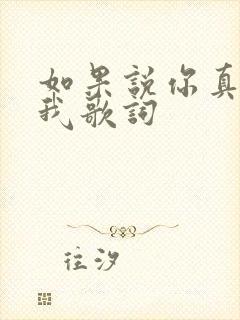 如果說你真
我歌詞
往汐